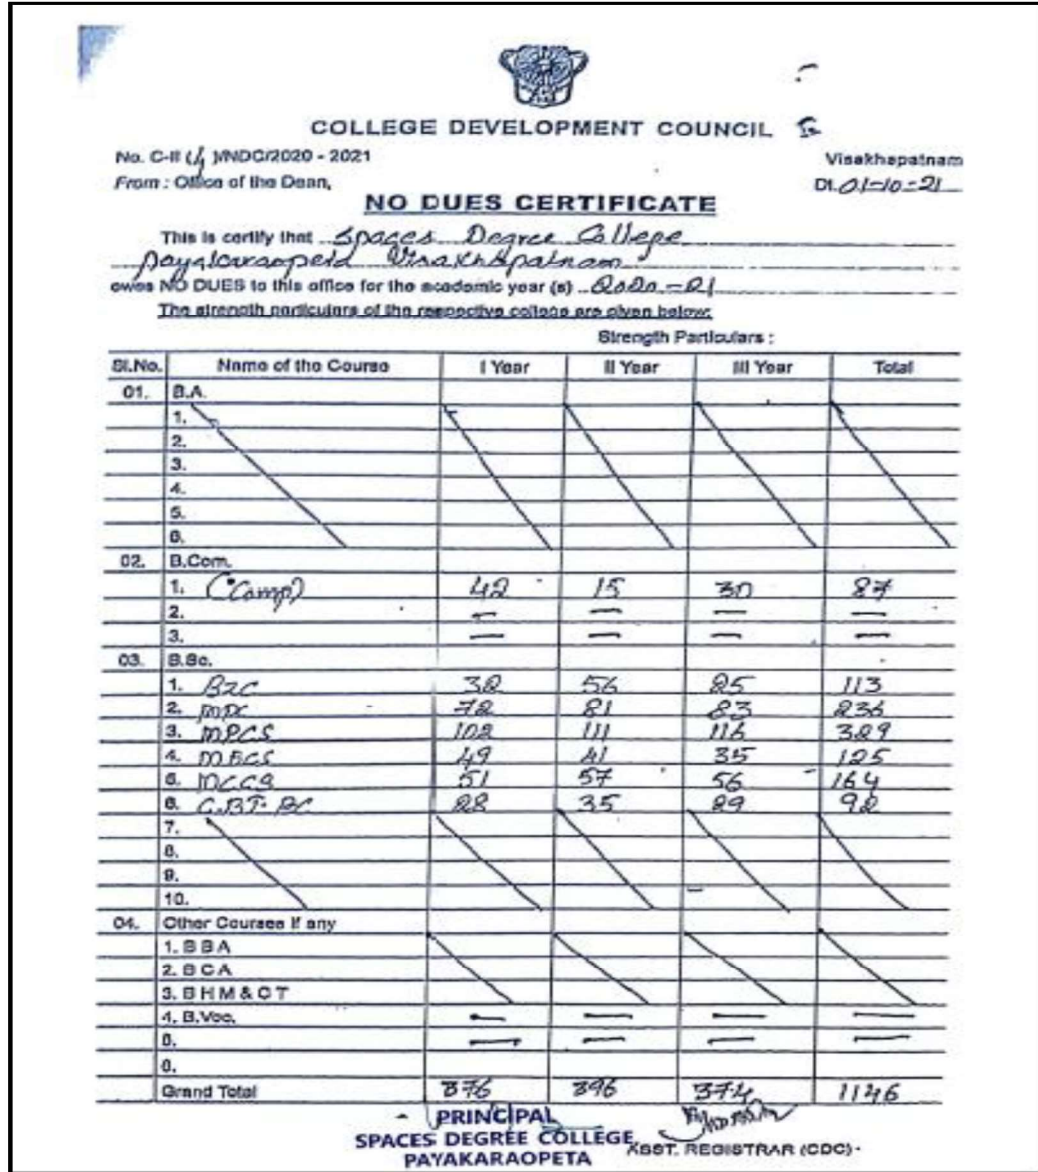 COLLEGE DEVELOPMENT COUNCIL
No. C-II ( )/NDC/2020 - 2021 Visakhapatnam
From : Office of the Dean, Dt. 01-10-21
NO DUES CERTIFICATE
This is certify that Spaces Degree College
Payakaraopeta Visakhapatnam
owes NO DUES to this office for the academic year (s) 2020-21
The strength particulars of the respective college are given below:
Strength Particulars :
Sl.No. Name of the Course I Year II Year III Year Total
01. B.A.
1.
2.
3.
4.
5.
6.
02. B.Com.
1. (Comp) 42 15 30 87
2. — — — —
3. — — — —
03. B.Sc.
1. BZC 32 56 25 113
2. MPC 72 81 83 236
3. MPCS 102 111 116 329
4. MECS 49 41 35 125
5. MCCS 51 57 56 164
6. C.BT.BC 28 35 29 92
7.
8.
9.
10.
04. Other Courses if any
1. B B A
2. B C A
3. B H M & C T
4. B.Voc. — — — —
5. — — — —
6.
Grand Total 376 396 374 1146
PRINCIPAL
SPACES DEGREE COLLEGE
PAYAKARAOPETA
ASST. REGISTRAR (CDC)